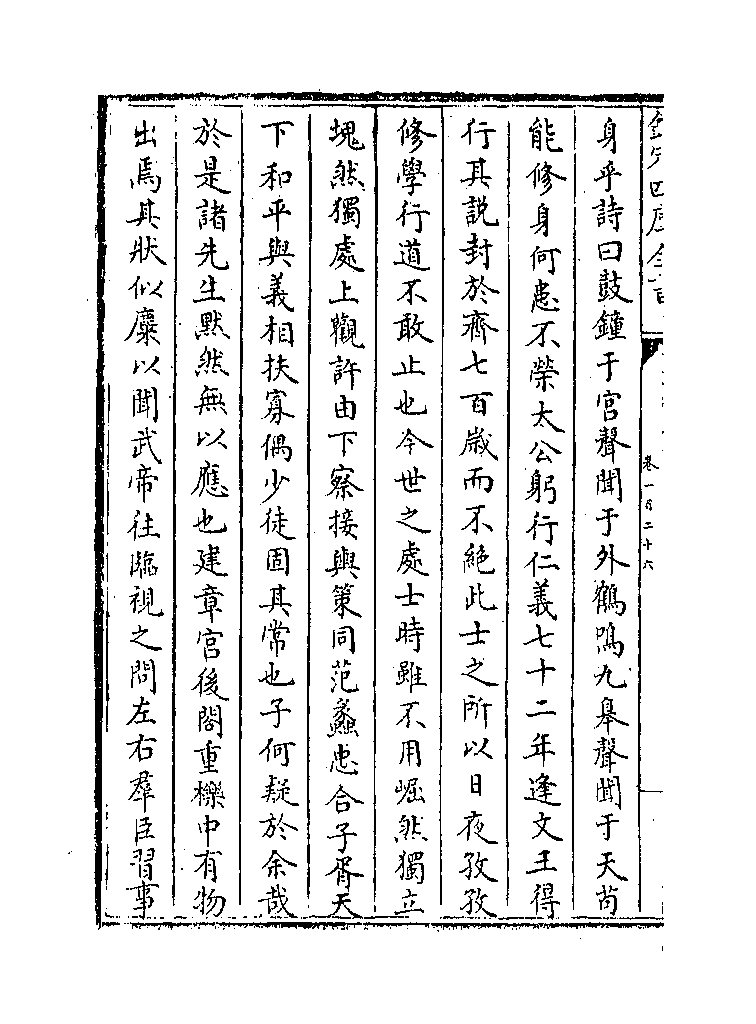 身乎詩曰鼓鐘于宮聲聞于外鶴鳴九臯聲聞于天苟
能修身何患不榮太公躬行仁義七十二年逢文王得
行其説封於齊七百嵗而不絶此士之所以日夜孜孜
修學行道不敢止也今世之處士時雖不用崛然獨立
塊然獨處上觀許由下察接輿策同范蠡忠合子胥天
下和平與義相扶寡偶少徒固其常也子何疑於余哉
於是諸先生黙然無以應也建章宮後閤重櫟中有物
出焉其狀似麋以聞武帝往臨視之問左右羣臣習事
卷一百二十六